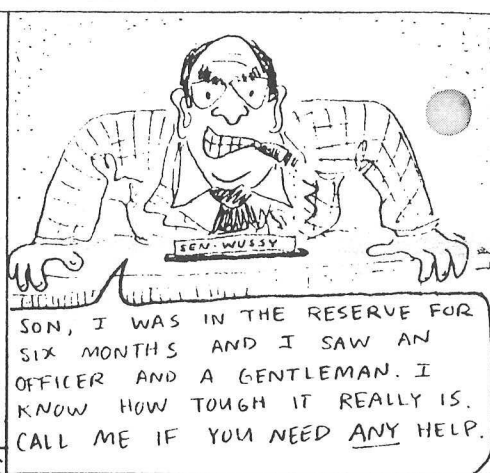 SEN. WUSSY
SON, I WAS IN THE RESERVE FOR
SIX MONTHS AND I SAW AN
OFFICER AND A GENTLEMAN. I
KNOW HOW TOUGH IT REALLY IS.
CALL ME IF YOU NEED ANY HELP.